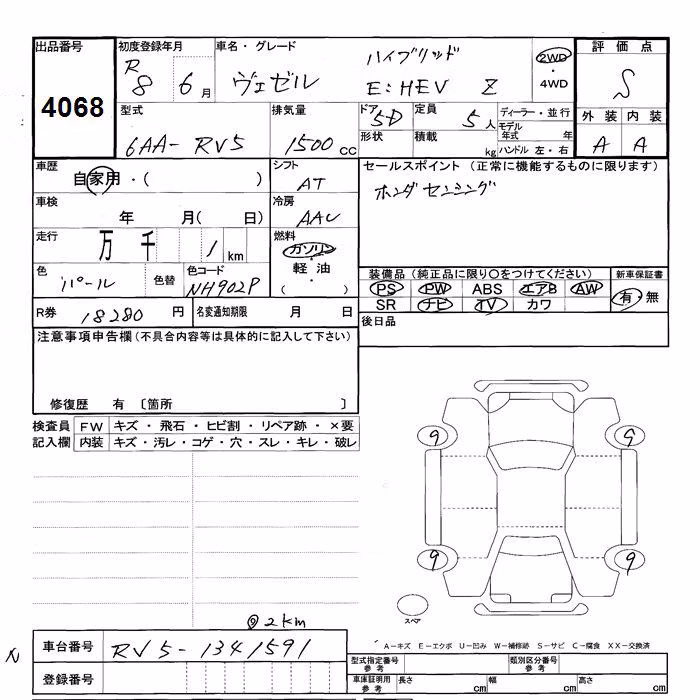 出品番号 初度登録年月 車名・グレード 評価点
4068 R 8 6月 ヴェゼル ハイブリッド E:HEV Z 2WD・4WD S
型式 排気量 ドア 定員 ディーラー・並行 外装 内装
6AA-RV5 1500cc 5D 5人 モデル年式 年 A A
形状 積載 kg ハンドル 左・右
車歴 自家用・( ) シフト AT セールスポイント (正常に機能するものに限ります)
ホンダセンシング
車検 年 月( 日) 冷房 AAC
走行 万 千 1 km 燃料 ガソリン・軽油・( )
色 パール 色替 色コード NH902P
装備品 (純正品に限り○をつけてください) 新車保証書
PS PW ABS エアB AW 有・無
SR ナビ TV カワ
R券 18280 円 名変通知期限 月 日
後日品
注意事項申告欄 (不具合内容等は具体的に記入して下さい)
修復歴 有 〔箇所 〕
検査員記入欄 FW キズ・飛石・ヒビ割・リペア跡・×要
内装 キズ・汚レ・コゲ・穴・スレ・キレ・破レ
9 9
9 9
スペア
◎2km
車台番号 RV5-1341591
登録番号
A-キズ E-エクボ U-凹み W-補修跡 S-サビ C-腐食 XX-交換済
型式指定番号 参考 類別区分番号 参考
車庫証明用 参考 長さ cm 幅 cm 高さ cm